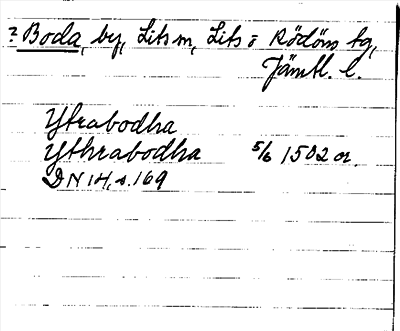 ? Boda, by, Lits sn, Lits o Rödöns tg,
Jämtl. l.
Ytrabodha
Ythrabodha 5/6 1502 or.
DN 14, s. 169